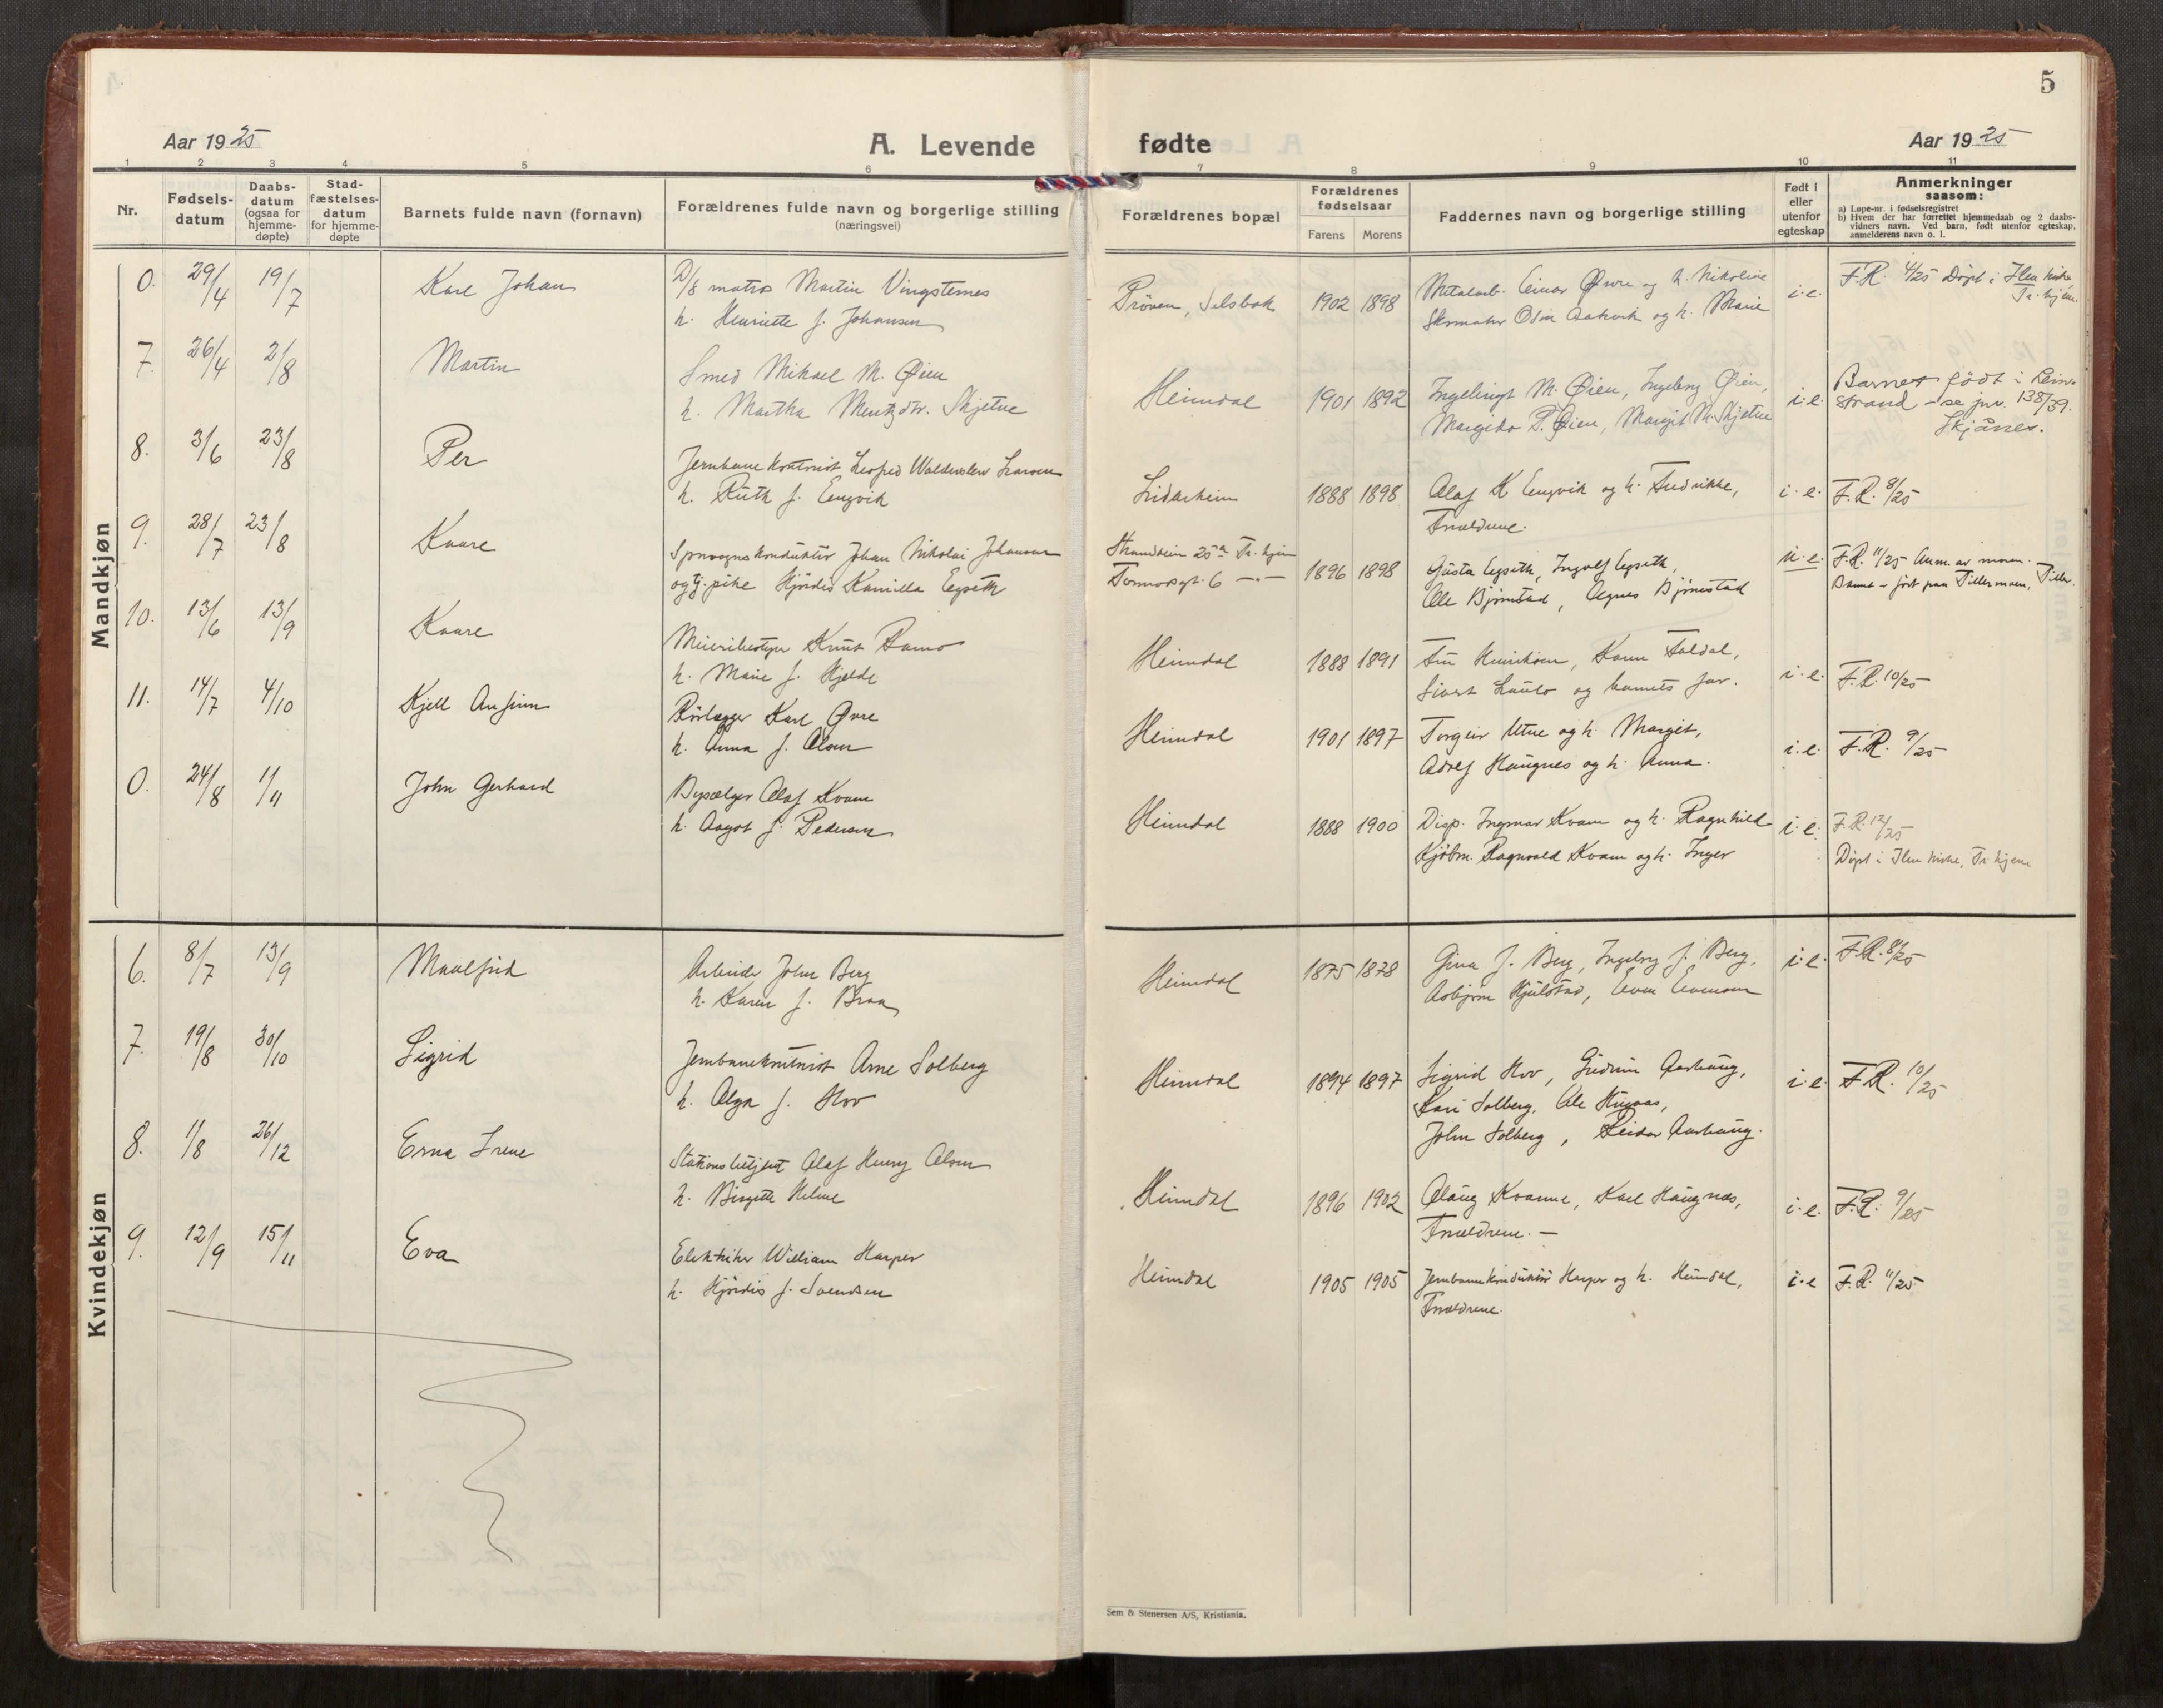 5
Aar 1925
A. Levende
fødte
Aar 1925
1 2 3 4 5 6 7 8 9 10 11
Nr.
Fødsels-
datum
Daabs-
datum
(ogsaa for
hjemme-
døpte)
Stad-
fæstelses-
datum
for hjemme-
døpte
Barnets fulde navn (fornavn)
Forældrenes fulde navn og borgerlige stilling
(næringsvei)
Forældrenes bopæl
Forældrenes
fødselsaar
Farens Morens
Faddernes navn og borgerlige stilling
Født i
eller
utenfor
egteskap
Anmerkninger
saasom:
a) Løpe-nr. i fødselsregistret
b) Hvem der har forrettet hjemmedaab og 2 daabs-
vidners navn. Ved barn, født utenfor egteskap,
anmelderens navn o. l.
Mandkjøn
0. 29/4 19/7 Karl Johan
D/S matros Martin Vingsternes
h. Henriette f. Johansen
Prøven, Selsbak 1902 1898
Metalarb. Einar Øvre og h. Nikoline
Skomaker Odin og h. Marie
i.e.
F.R. 4/25 Døpt i Ilen kirke
Tr.hjem.
7. 26/4 2/8 Martin
Smed Mikael M. Øien
h. Martha Mentzdtr. Skjetne
Heimdal 1901 1892
Ingebrigt M. Øien, Ingeborg Øien,
P. Øien, Margit M. Skjetne
i.e.
Barnet født i Lein-
strand - se jnr. 138/39.
Skjånes.
8. 3/6 23/8 Per
Jernbane kontorist Waldemar Larsen
h. Ruth f. Engvik
1888 1898
Olaf K Engvik og h. Fredrikke,
Forældrene.
i.e. F.R. 8/25
9. 28/7 23/8 Kaare
Sporvognskonduktør Johan Nikolai Johansen
og tj.pike Hjørdis Kamilla Egseth
25a Tr.hjem
6 —"— 1896 1898
Gusta Egseth, Ingolf Egseth,
Ole Bjørnstad, Agnes Bjørnstad
u.e.
F.R. 11/25 Anm. av moren.
Barnet er født paa Tillermoen, Tiller.
10. 13/6 13/9 Kaare
Meieribestyrer Knut Ramo
h. Marie f. Hjelde
Heimdal 1888 1891
Fru Henriksen, Karen Foldal,
Sivert og barnets far.
i.e. F.R. 10/25
11. 14/7 4/10 Kjell Anfinn
Rørlægger Karl Øvre
h. Anna f. Olsen
Heimdal 1901 1897
Torgeir Utne og h. Margit,
Adolf Haugnes og h. Anna.
i.e. F.R. 9/25
0. 24/8 1/11 John Gerhard
Bysælger Olaf Kvam
h. Aagot f. Pedersen
Heimdal 1888 1900
Disp. Ingmar Kvam og h. Ragnhild
Kjøbm. Ragnvald Kvam og h. Inger
i.e.
F.R. 12/25
Døpt i Ilen kirke, Tr.hjem
Kvindekjøn
6. 8/7 13/9 Maalfrid
Arbeider John Berg
h. Karen f. Braa
Heimdal 1875 1878
Gina J. Berg, Ingeborg J. Berg,
Asbjørn Hjulstad, Even Evensen
i.e. F.R. 8/25
7. 19/8 30/10 Sigrid
Jernbanekontorist Arne Solberg
h. Olga f. Hov
Heimdal 1894 1897
Sigrid Hov, Gudrun Aashaug,
Kari Solberg, Ole
John Solberg, Reidar Aashaug.
i.e. F.R. 10/25
8. 1/8 26/12 Erna Irene
Stationsbetjent Olaf Henry Olsen
h. Birgitte Helene
Heimdal 1896 1902
Olaug Kvamme, Karl Haugnæs,
Forældrene. —
i.e. F.R. 9/25
9. 12/9 15/11 Eva
Elektriker William Harper
h. Hjørdis f. Svendsen
Heimdal 1905 1905
Jernbanekonduktør Harper og h. Heimdal,
Forældrene.
i.e F.R. 11/25
Sem & Stenersen A/S, Kristiania.